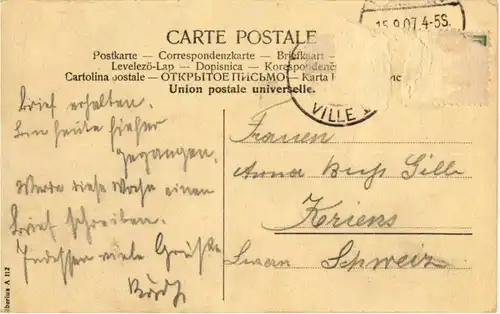 15.9.07. 4-5S.
CARTE POSTALE
Postkarte — Correspondenzkarte — Briefkaart —
Levelező-Lap — Dopisnica —
Cartolina postale — ОТКРЫТОЕ ПИСЬМО — Karta
Union postale universelle.
VILLE
Brief erhalten.
Bin heute hieher
gegangen.
Werde diese Woche einen
Brief schreiben.
Indessen viele Grüsse
Frauen
Anna
Kriens
Luzern Schweiz
A 112